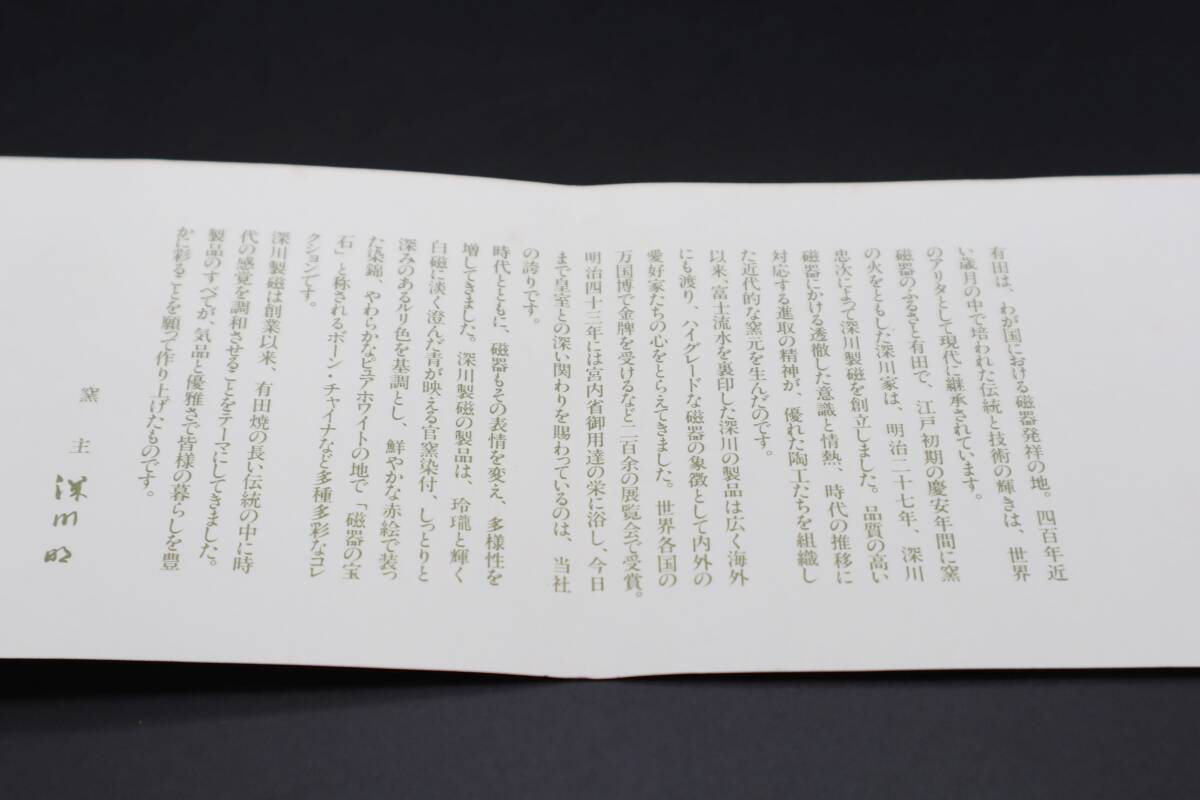 有田は、わが国における磁器発祥の地。四百年近
い歳月の中で培われた伝統と技術の輝きは、世界
のアリタとして現代に継承されています。
磁器のふるさと有田で、江戸初期の慶安年間に窯
の火をともした深川家は、明治二十七年、深川
忠次によって深川製磁を創立しました。品質の高い
磁器にかける透徹した意識と情熱、時代の推移に
対応する進取の精神が、優れた陶工たちを組織し
た近代的な窯元を生んだのです。
以来、富士流水を裏印した深川の製品は広く海外
にも渡り、ハイグレードな磁器の象徴として内外の
愛好家たちの心をとらえてきました。世界各国の
万国博で金牌を受けるなど二百余の展覧会で受賞。
明治四十三年には宮内省御用達の栄に浴し、今日
まで皇室との深い関わりを賜わっているのは、当社
の誇りです。
時代とともに、磁器もその表情を変え、多様性を
増してきました。深川製磁の製品は、玲瓏と輝く
白磁に淡く澄んだ青が映える官窯染付、しっとりと
深みのあるルリ色を基調とし、鮮やかな赤絵で装っ
た染錦、やわらかなピュアホワイトの地で「磁器の宝
石」と称されるボーン・チャイナなど多種多彩なコレ
クションです。
深川製磁は創業以来、有田焼の長い伝統の中に時
代の感覚を調和させることをテーマにしてきました。
製品のすべてが、気品と優雅さで皆様の暮らしを豊
かに彩ることを願って作り上げたものです。
窯主 深川明